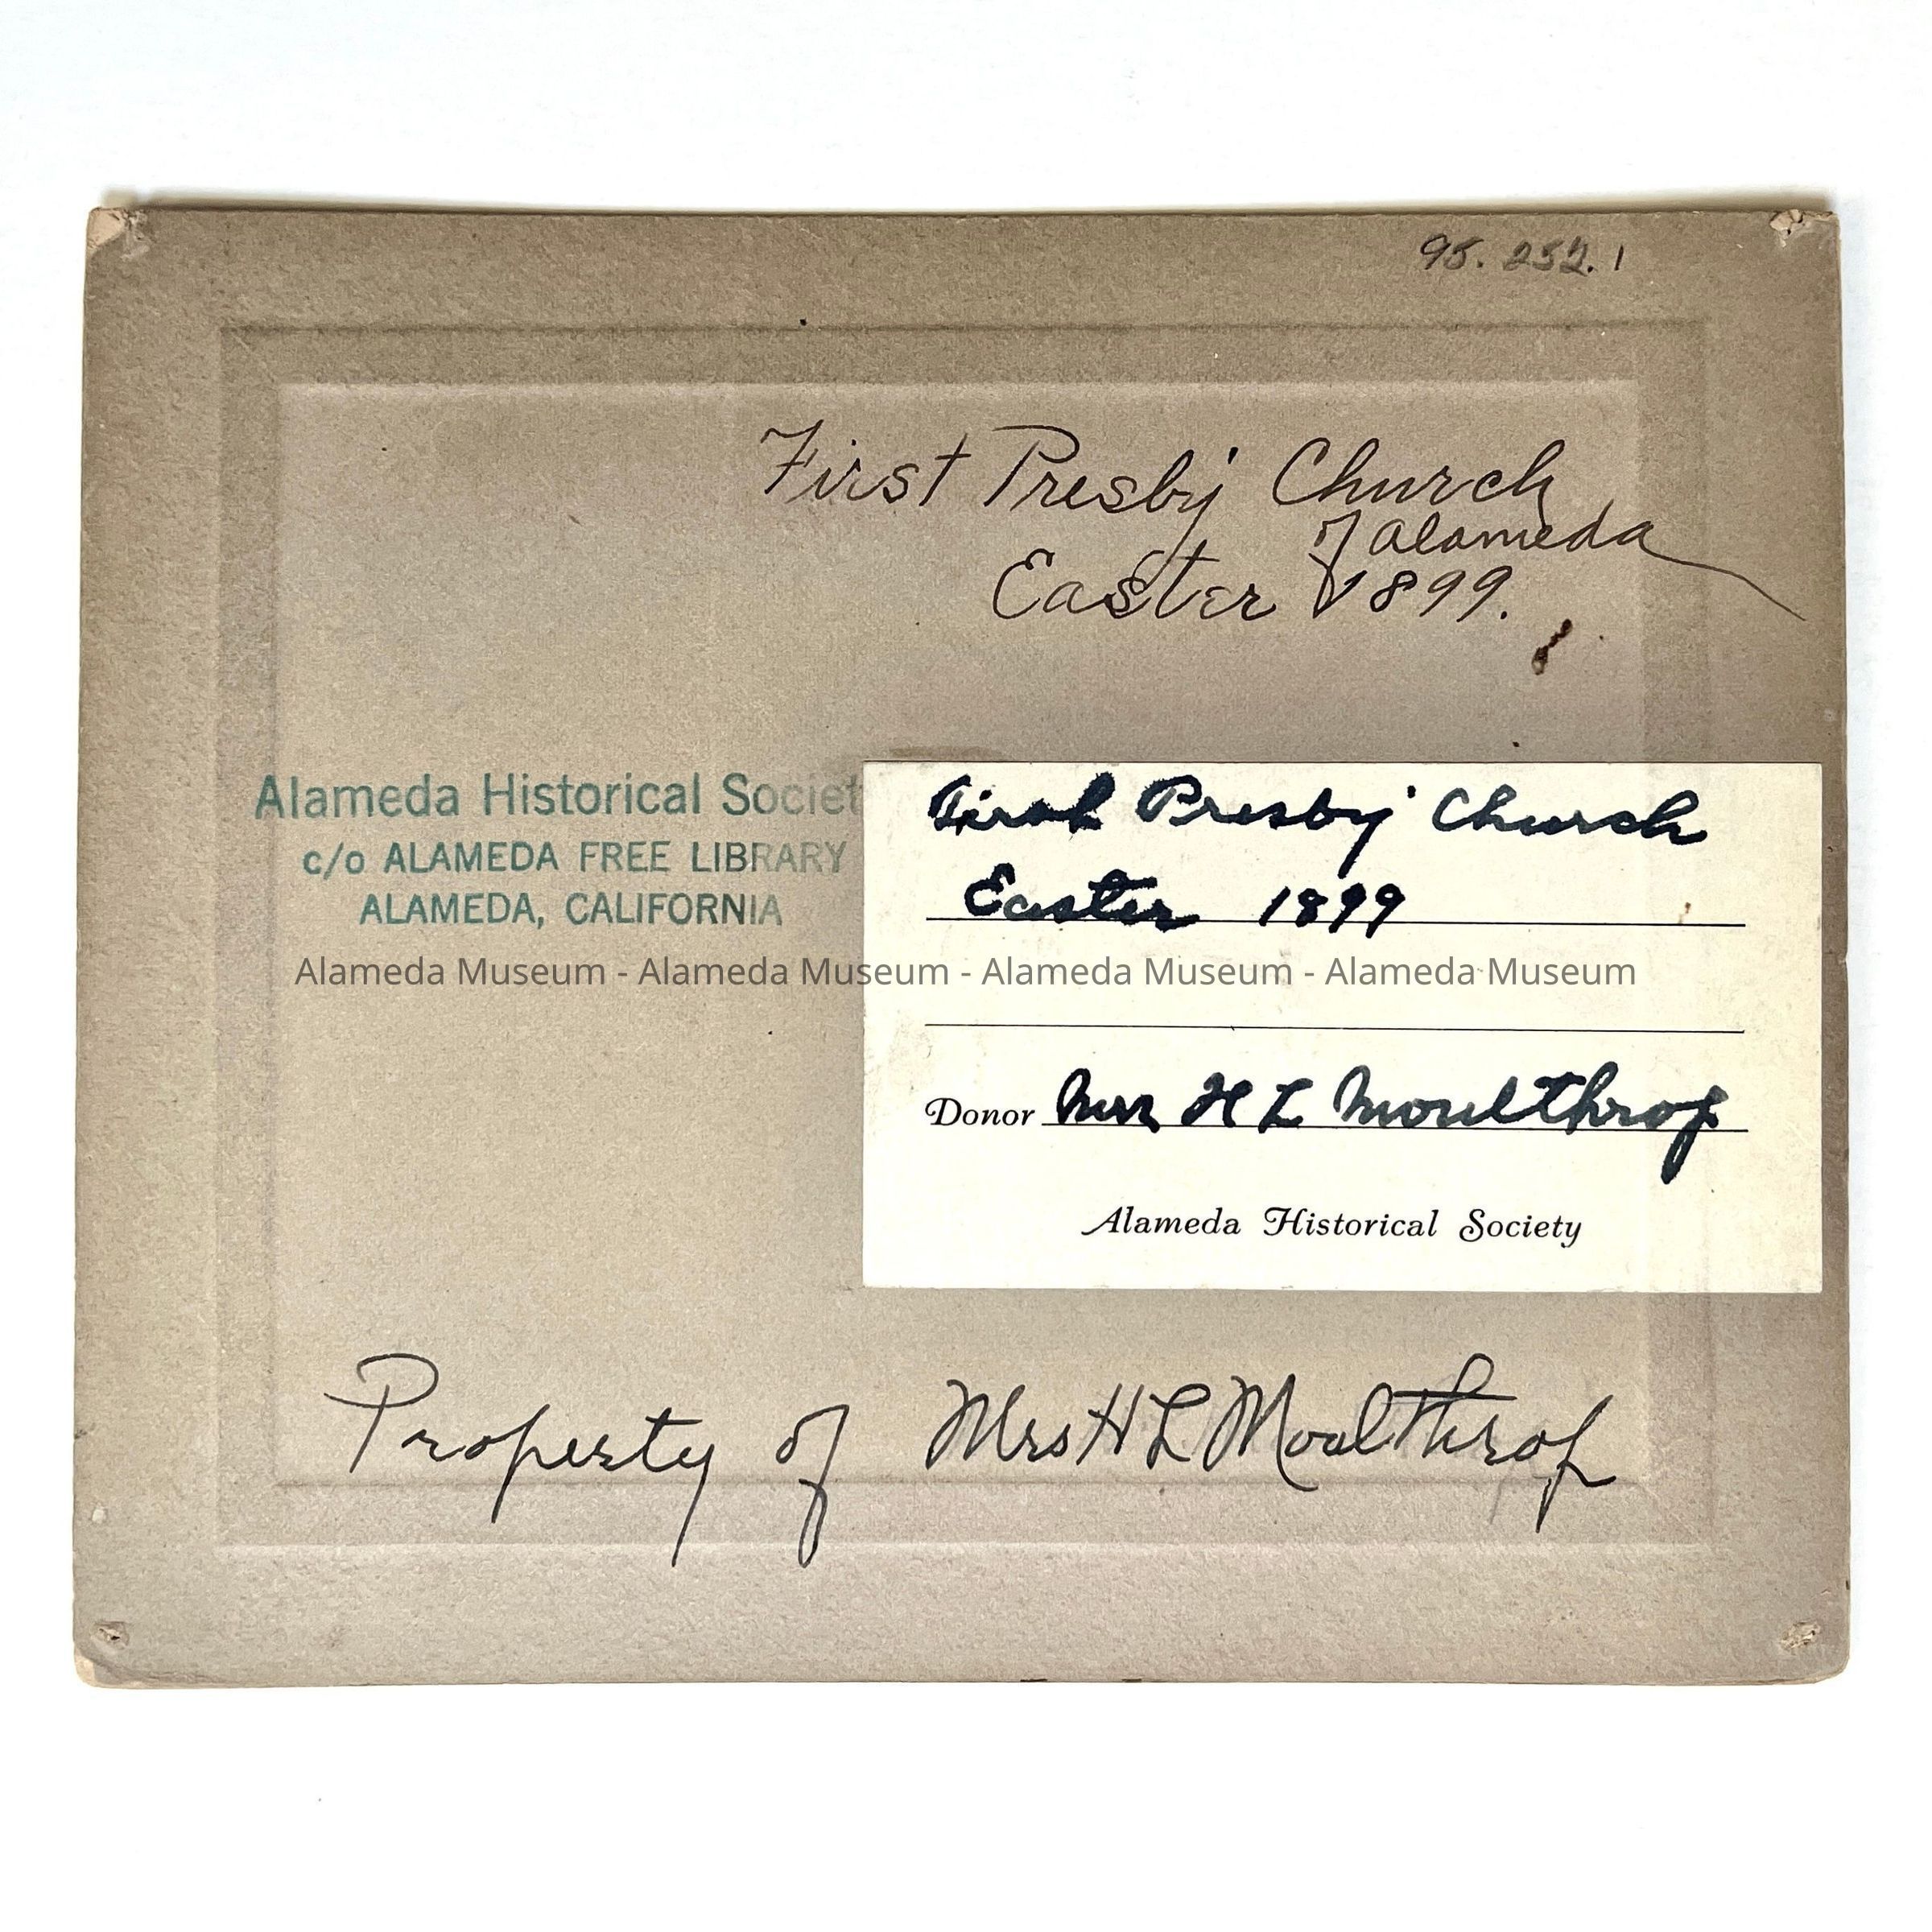 95. 252. 1
First Presby Church
of Alameda
Easter 1899.
Alameda Historical Societ
c/o ALAMEDA FREE LIBRARY
ALAMEDA, CALIFORNIA
First Presby Church
Easter 1899
Alameda Museum - Alameda Museum - Alameda Museum - Alameda Museum
Donor Mrs H L Moulthrop
Alameda Historical Society
Property of Mrs H L Moulthrop